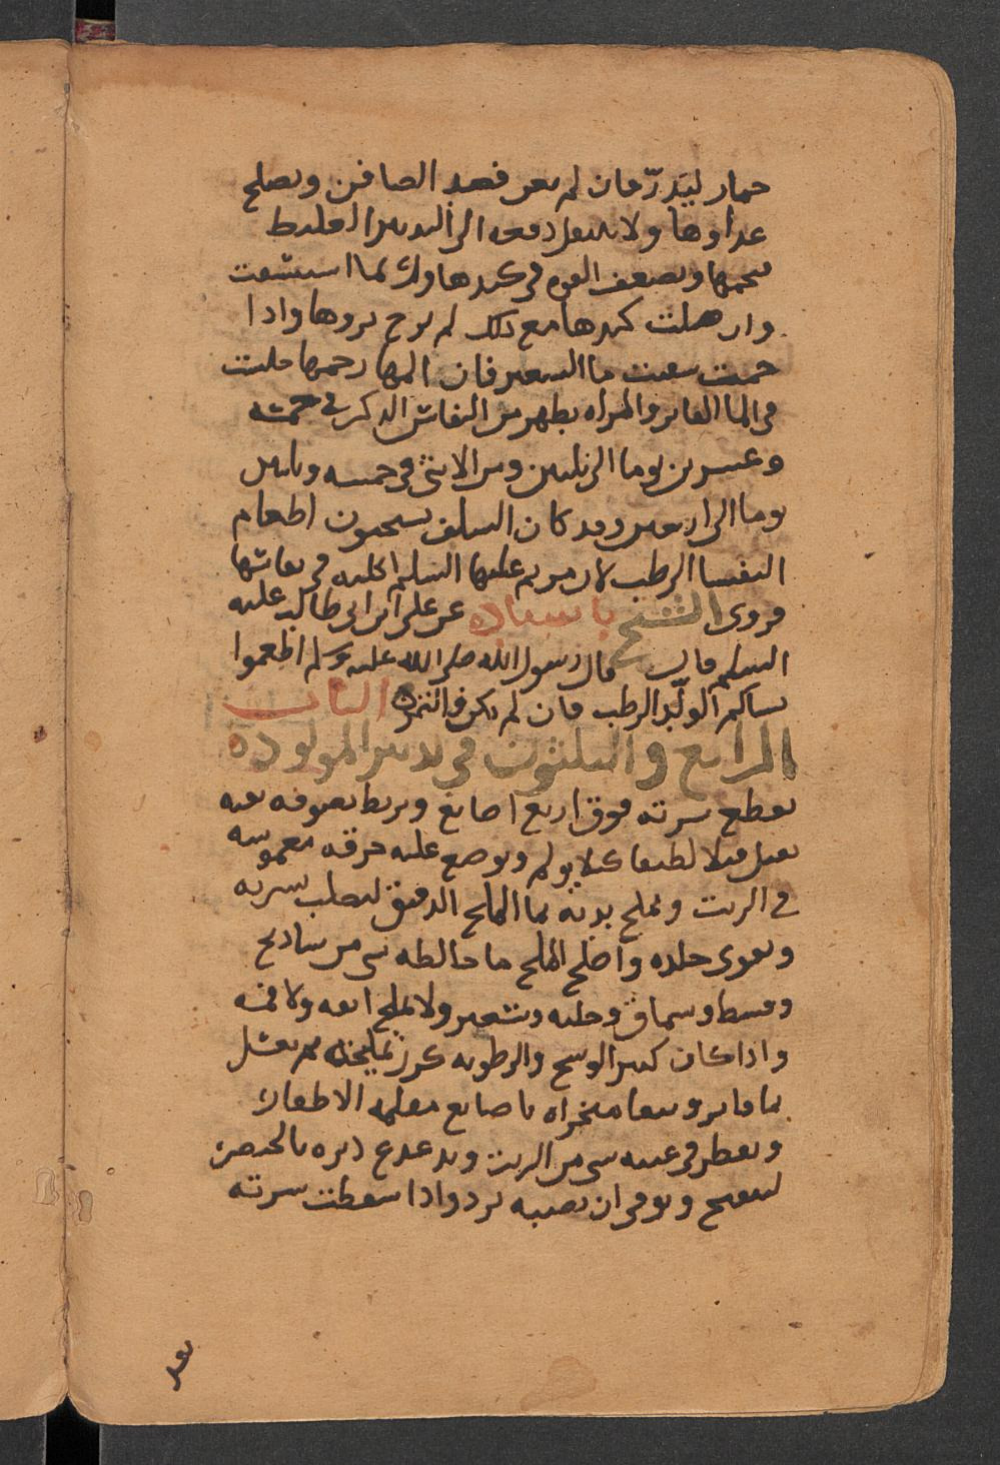 حمار ليدرّ فان لم يغن فصد الصافن ويصلح
غداوها ولا ينتقل دفعه الى التدبير الغليظ
فيحمها ويضعف القوه في كبدها وان
وان هملت كبدها مع ذلك لم يرج بروها واذا
حمت سقيت ما الشعير فان رحمها جلست
في الما الفاتر والمراه يطهر من النفاس الذكر في خمسه
وعشرين يوما الى ثلثين ومن الانثى في خمسه وثلثين
يوما الى اربعين وقد كان السلف يستحبون اطعام
النفسا الرطب لان مريم عليها السلم اكلته في نفاسها
فروى الشيخ باسناده عن على ابن ابى طالب عليه
السلم قال قال رسول الله صلى الله عليه وسلم اطعموا
نساكم الولّد الرطب فان لم يكن فالتمره الباب
الرابع والثلثون في تدبير المولود
يقطع سرته فوق اربع اصابع ويربط بصوفه نقيه
تفتل فتلا لطيفا كيلا يولم ويوضع عليه خرقه مغموسه
في الزيت ويملح بدنه بما الملح الدقيق ليصلب بشرته
ويقوى جلده واصلح الملح ما خالطه شى من سادنج
وقسط وسماق وحلبه وصعتر ولا يملح انفه ولا فمه
واذا كان كثير الوسخ والرطوبه كرر تمليحه ثم يغسل
بما فاتر وينقا منخراه باصابع مقلمه الاظفار
ويقطر في عينيه شى من الزيت ويدغدغ دبره بالخنصر
لينفتح ويوقى ان يصيبه برد واذا سقطت سرته
بعد